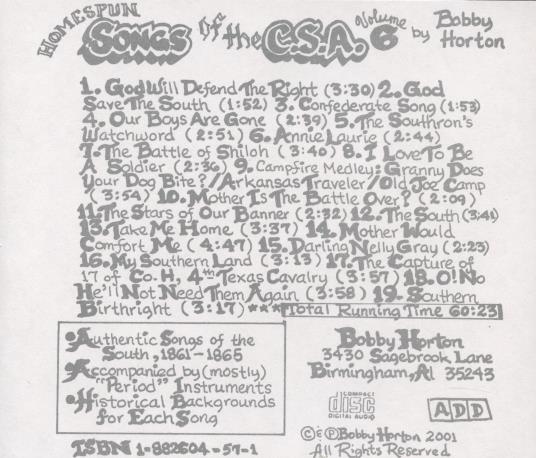 HOMESPUN SONGS Of the C.S.A. Volume 6 by Bobby Horton
1. God Will Defend The Right (3:30) 2. God
Save The South (1:52) 3. Confederate Song (1:53)
4. Our Boys Are Gone (2:39) 5. The Southron's
Watchword (2:51) 6. Annie Laurie (2:44)
7. The Battle of Shiloh (3:40) 8. I Love To Be
A Soldier (2:36) 9. Campfire Medley: Granny Does
Your Dog Bite?/Arkansas Traveler/Old Joe Camp
(3:54) 10. Mother Is The Battle Over? (2:09)
11. The Stars of Our Banner (2:32) 12. The South (3:41)
13. Take Me Home (3:37) 14. Mother Would
Comfort Me (4:47) 15. Darling Nelly Gray (2:23)
16. My Southern Land (3:13) 17. The Capture of
17 of Co. H, 4th Texas Cavalry (3:57) 18. O! No
He'll Not Need Them Again (3:58) 19. Southern
Birthright (3:17) *** Total Running Time 60:23
• Authentic Songs of the
South, 1861-1865
• Accompanied by (mostly)
"Period" Instruments
• Historical Backgrounds
for Each Song
ISBN 1-882604-57-1
Bobby Horton
3430 Sagebrook Lane
Birmingham, Al 35243
COMPACT
disc
DIGITAL AUDIO
ADD
© & ℗ Bobby Horton 2001
All Rights Reserved